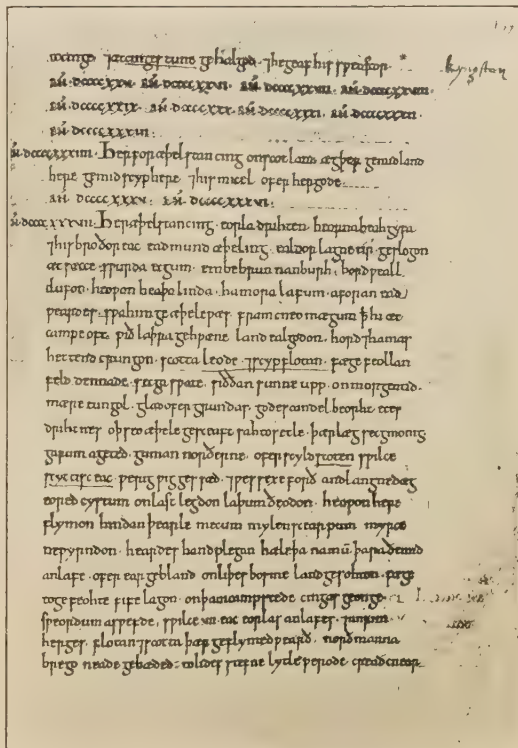 cinge ⁊ æt cinges tune gehalgod ⁊ he geaf his sƿeostor
kyngston
AÑ · DCCCCXXV · AÑ · DCCCCXXVI · AÑ · DCCCCXXVII · AÑ · DCCCCXXVIII ·
AÑ · DCCCCXXIX · AÑ · DCCCCXXX · AÑ · DCCCCXXXI · AÑ · DCCCCXXXII ·
AÑ · DCCCCXXXIII ·
AÑ · DCCCCXXXIIII · Her for æþelstan cing on scotland ægþer ge mid land
here ge mid scyphere ⁊ his micel ofer hergode ·
AÑ · DCCCCXXXV · AÑ · DCCCCXXXVI ·
AÑ · DCCCCXXXVII · Her æþelstan cing · eorla drihten · beorna beahgyfa
⁊ his broðor eac eadmund æþeling · ealdor lagne tir · geslogon
æt sæcce · sƿurda ecgum · embe brunanburh · bordƿeall
clufon · heoƿon heaþolinda · hamora lafum · aforan ead
ƿeardes · sƿa him geæþele ƿæs · fram cneomægum þ hi æt
campe oft · ƿið laþra gehƿæne · land ealgodon · hord ⁊ hamas
hettend crungon · scotta leode · ⁊ scypflotan · fæge feollan
feld dennade · secga sƿate · siððan sunne upp · on morgentid ·
mære tungol · glad ofer grundas · godes candel beorht · eces
drihtnes · oþ seo æþele gesceaft · sah to setle · þær læg secg monig
garum ageted · guman norðerne · ofer scyld scoten · sƿilce
scyttisc eac · ƿerig ƿigges sæd · ⁊ ƿessexe forð · andlangne dæg
eored cystum · on last legdon laþum ðeodon · heoƿon here
flymon hindan þearle mecum mylenscearpum · myrce
ne ƿyrndon · heardes handplegan hæleþa namū · þara ðe mid
anlafe · ofer eargebland on liþes bosme · land gesohton · fæge
to gefeohte · fife lagon · on þam campstede · cingas geonge ·
sƿeordum asƿefde · sƿilce VII · eac eorlas anlafes · unrim
herges · flotan ⁊ scotta þær geflymed ƿearð · norðmanna
brego neade gebæded · to lides stefne lytle ƿerode · cread cnear